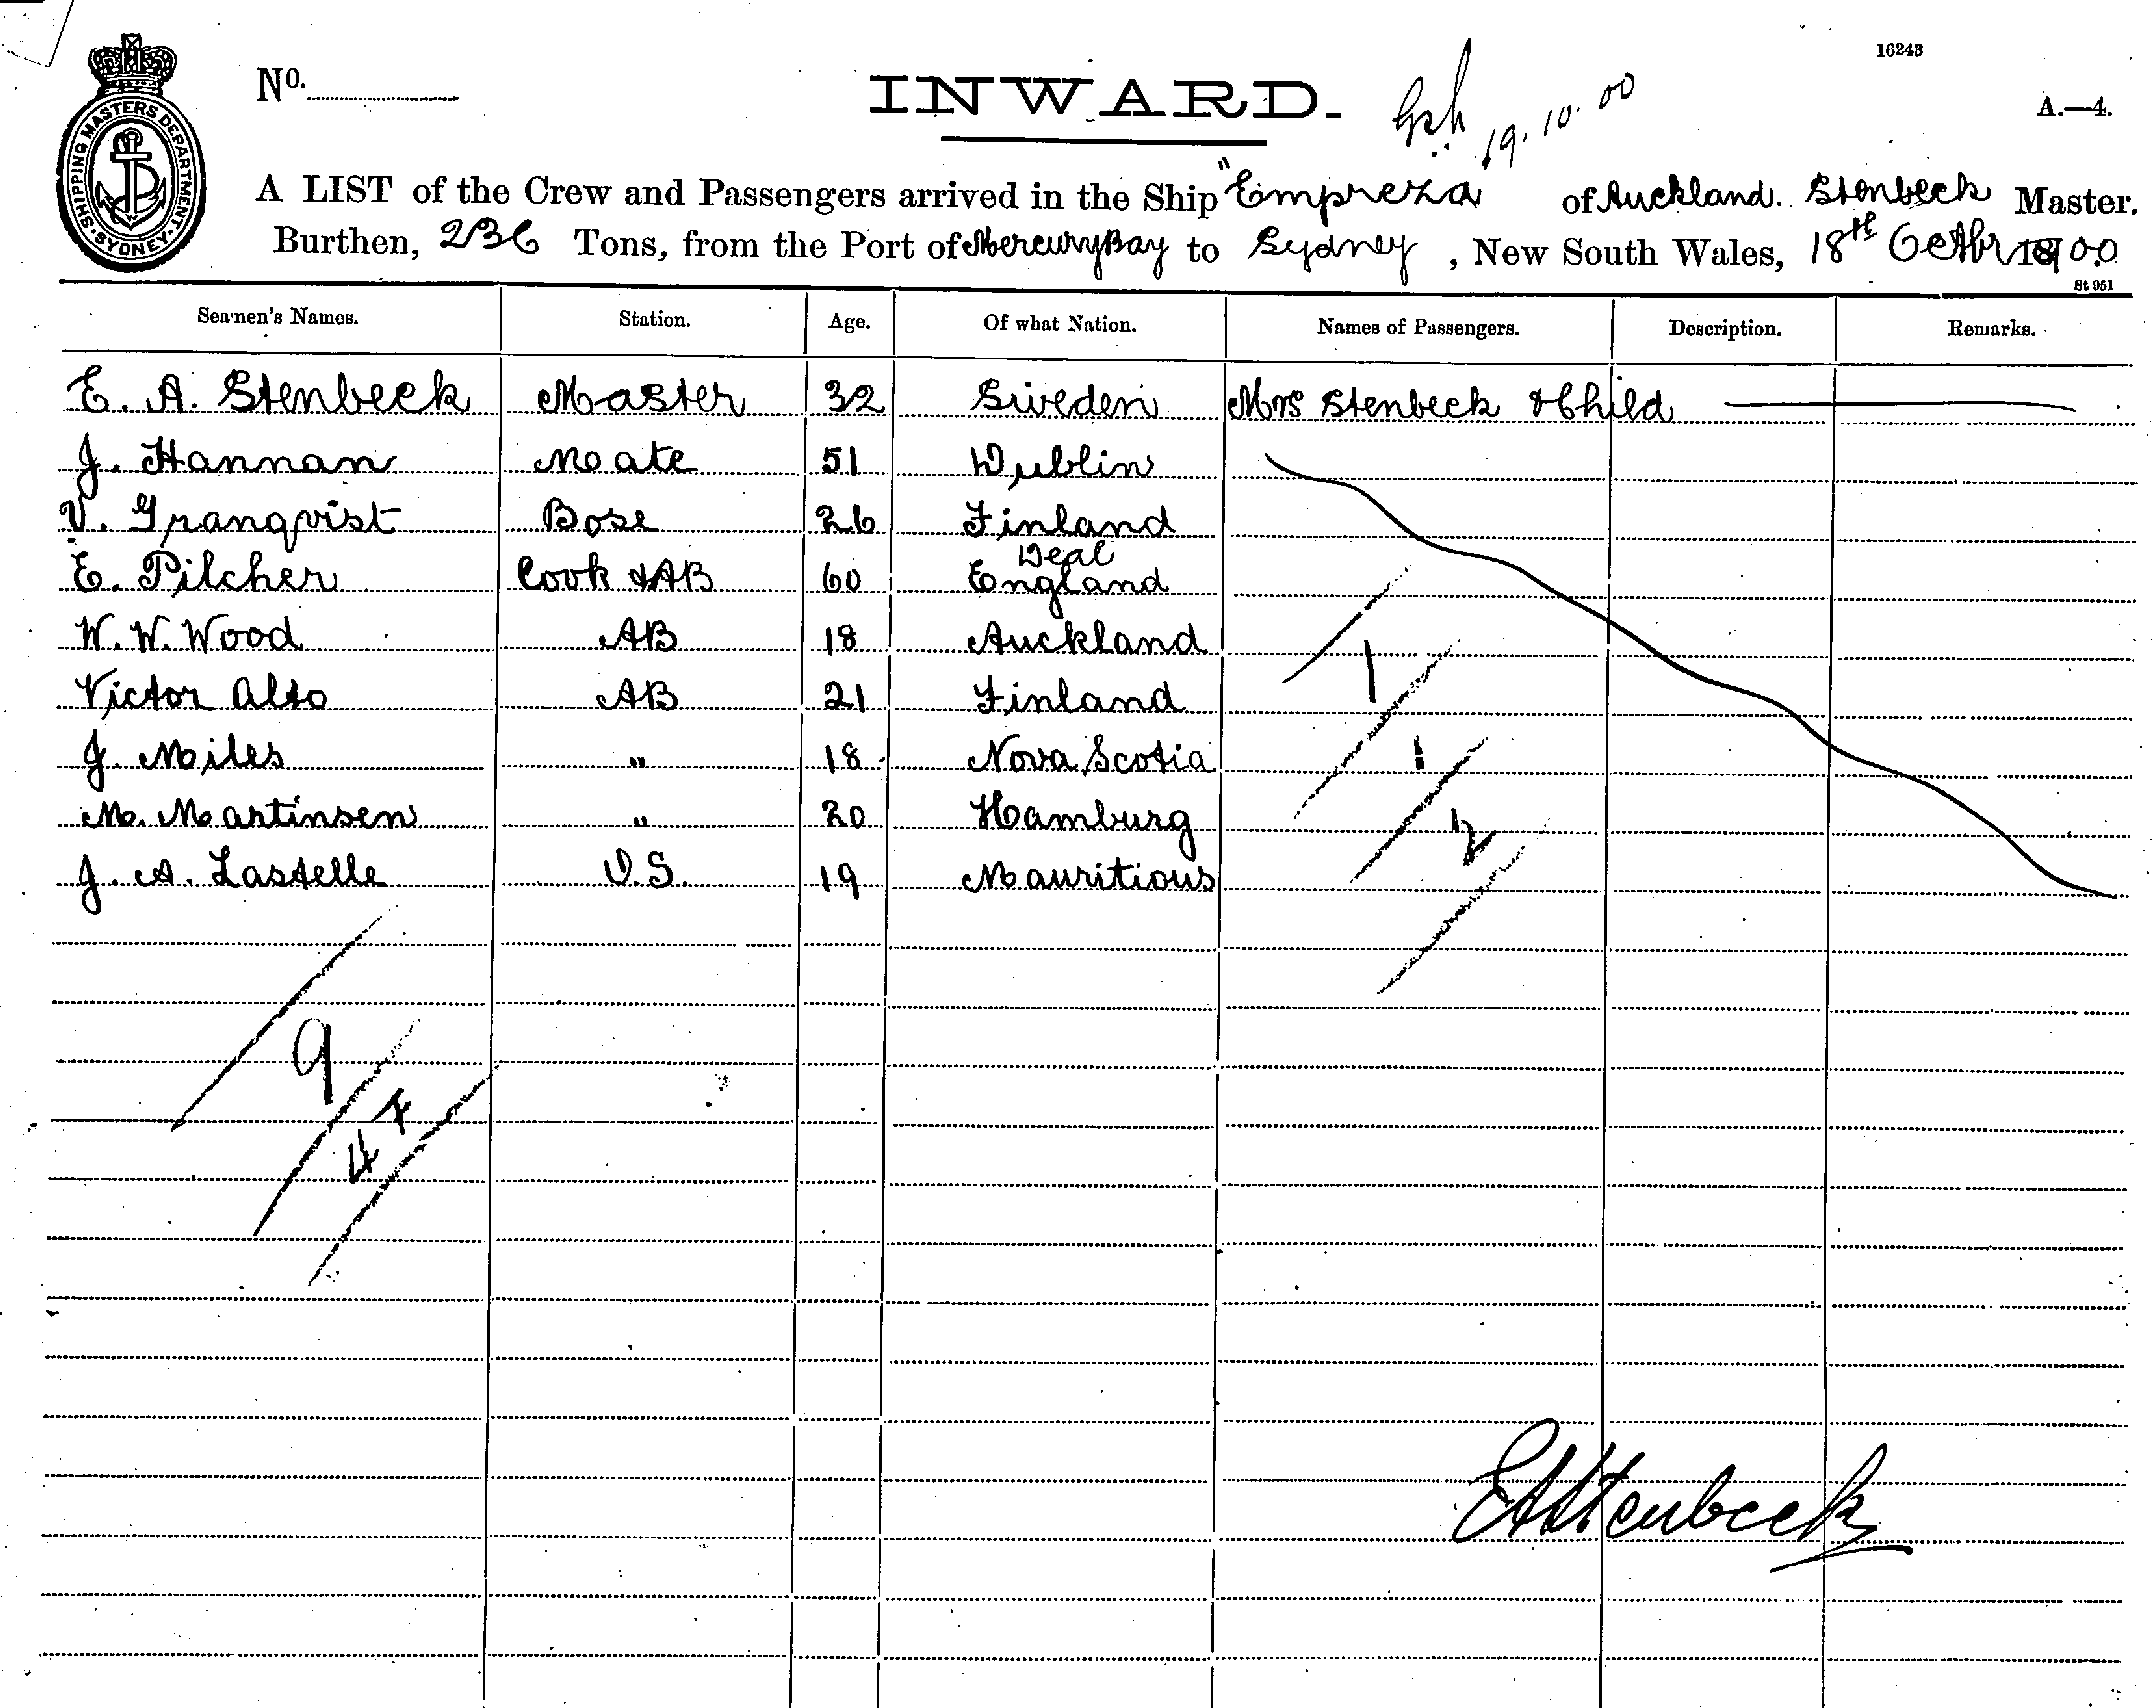 SHIPPING MASTERS DEPARTMENT
SYDNEY
No.
INWARD.
19.10.00
16243
A.—4.
A LIST of the Crew and Passengers arrived in the Ship "Empreza" of Auckland. Stenbeck Master.
Burthen, 236 Tons, from the Port of Mercury Bay to Sydney, New South Wales, 18th Octbr 1900
St 951
Seamen's Names. Station. Age. Of what Nation. Names of Passengers. Description. Remarks.
E. A. Stenbeck Master 32 Sweden Mrs Stenbeck & Child
J. Hannan Mate 51 Dublin
V. Granqvist Bose 26 Finland
E. Pilcher Cook & AB 60 Deal England
W. W. Wood AB 18 Auckland
Victor Alto AB 21 Finland
J. Miles " 18 Nova Scotia
M. Martinsen " 20 Hamburg
J. A. Lastelle O.S. 19 Mauritious
1
1
2
9
4 F
EAStenbeck